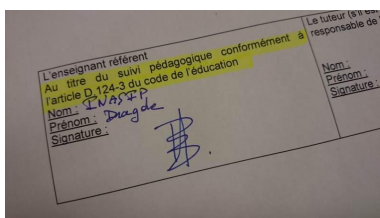 L'enseignant référent
Au titre du suivi pédagogique conformément à
l'article D.124-3 du code de l'éducation
Nom :
Prénom : Dragde
Signature :
Le tuteur (s'il est
responsable de
Nom :
Prénom :
Signature :